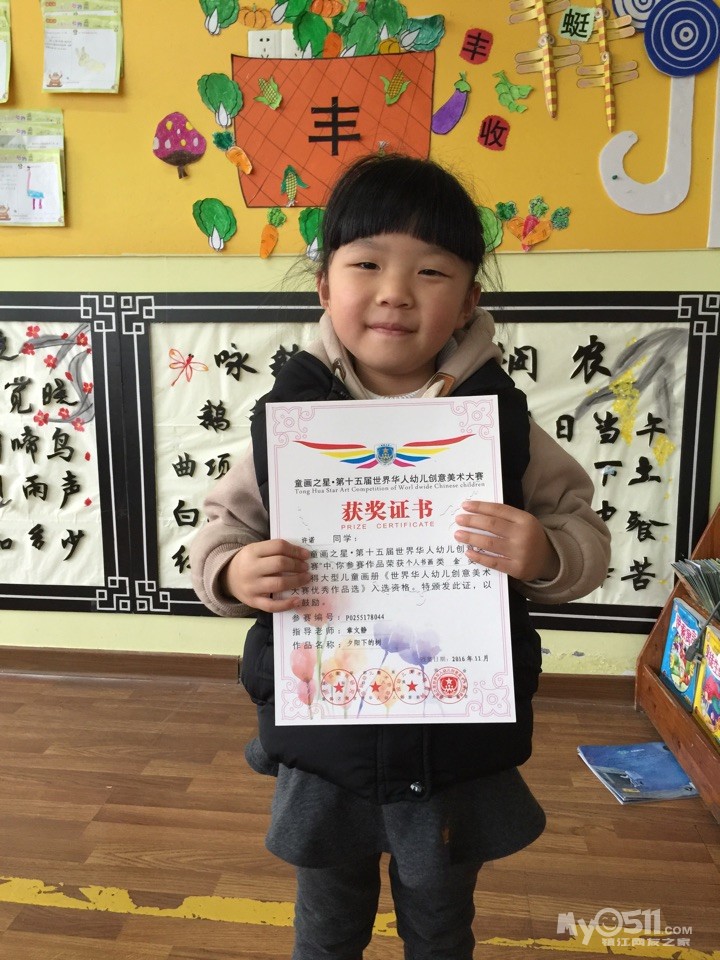 蜓
丰
丰
收
咏
鹅
鹅
项
曲
白
觉
晓
啼
鸟
雨
声
知
多
少
农
日
当
午
下
土
餐
苦
童画之星·第十五届世界华人幼儿创意美术大赛
Tong Hua Star Art Competition of Worl dwide Chinese children
获奖证书
PRIZE CERTIFICATE
许诺 同学：
童画之星·第十五届世界华人幼儿创意
赛"中,你参赛作品荣获个人书画类 金 奖
大型儿童画册《世界华人幼儿创意美术
大赛优秀作品选》入选资格。特颁发此证，以
鼓励。
参赛编号：P0255178044
指导老师：章文静
作品名称：夕阳下的树
日期：2016年11月
My0511.COM
镇江网友之家